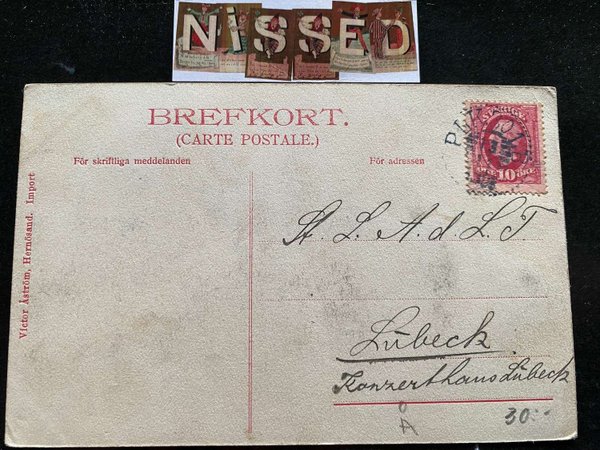 NiSSED
BREFKORT.
(CARTE POSTALE.)
För skriftliga meddelanden
För adressen
SVERIGE
10 ÖRE
St. L. A. d L T
Lübeck
Konzerthaus Lübeck
30
Victor Åström, Hernösand. Import